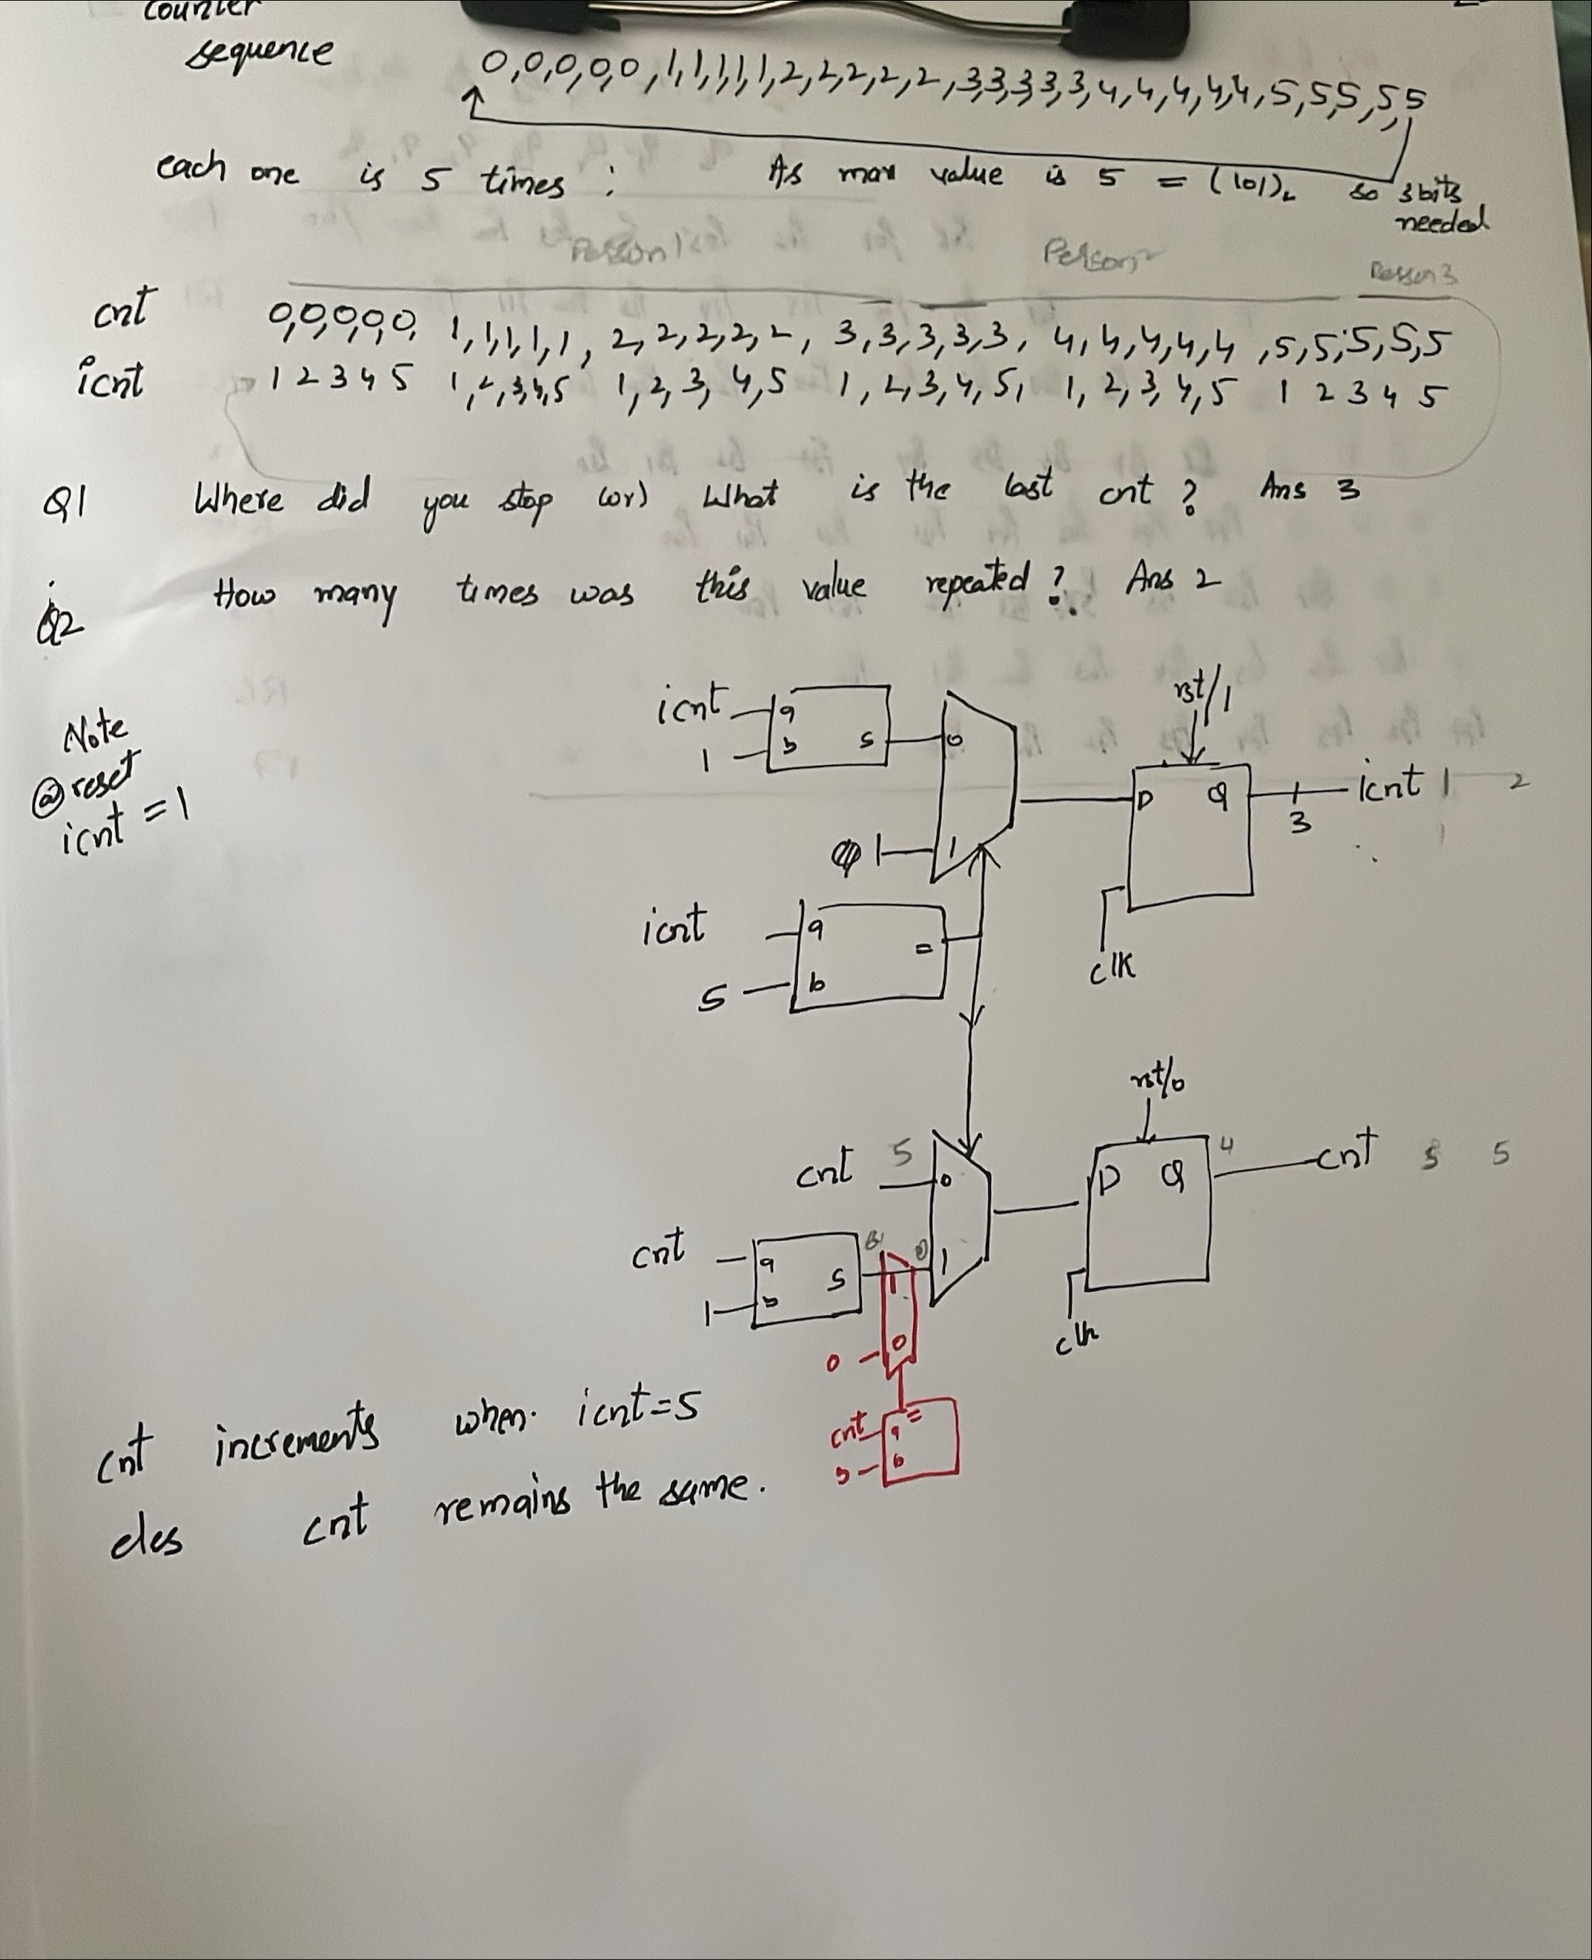 counter
sequence
0,0,0,0,0,1,1,1,1,1,2,2,2,2,2,3,3,3,3,3,4,4,4,4,4,5,5,5,5,5
each one is 5 times : As max value is 5 = (101)₂ so 3bits
needed
Person1 Person2 Person3
cnt 0,0,0,0,0, 1,1,1,1,1, 2,2,2,2,2, 3,3,3,3,3, 4,4,4,4,4,5,5,5,5,5
icnt 1 2 3 4 5 1,2,3,4,5 1,2,3,4,5 1,2,3,4,5, 1,2,3,4,5 1 2 3 4 5
Q1 Where did you stop (or) What is the last cnt? Ans 3
Q2 How many times was this value repeated? Ans 2
Note
@reset
icnt = 1
icnt a
1 b s 0
rst/1
1 1
D Q icnt 1 2
3
clk
icnt a =
5 b
rst/0
cnt 5 0
D Q 4 cnt 5 5
cnt a
1 b s 6 1 0 1
clk
0 0
cnt a =
5 b
cnt increments when icnt=5
eles cnt remains the same.